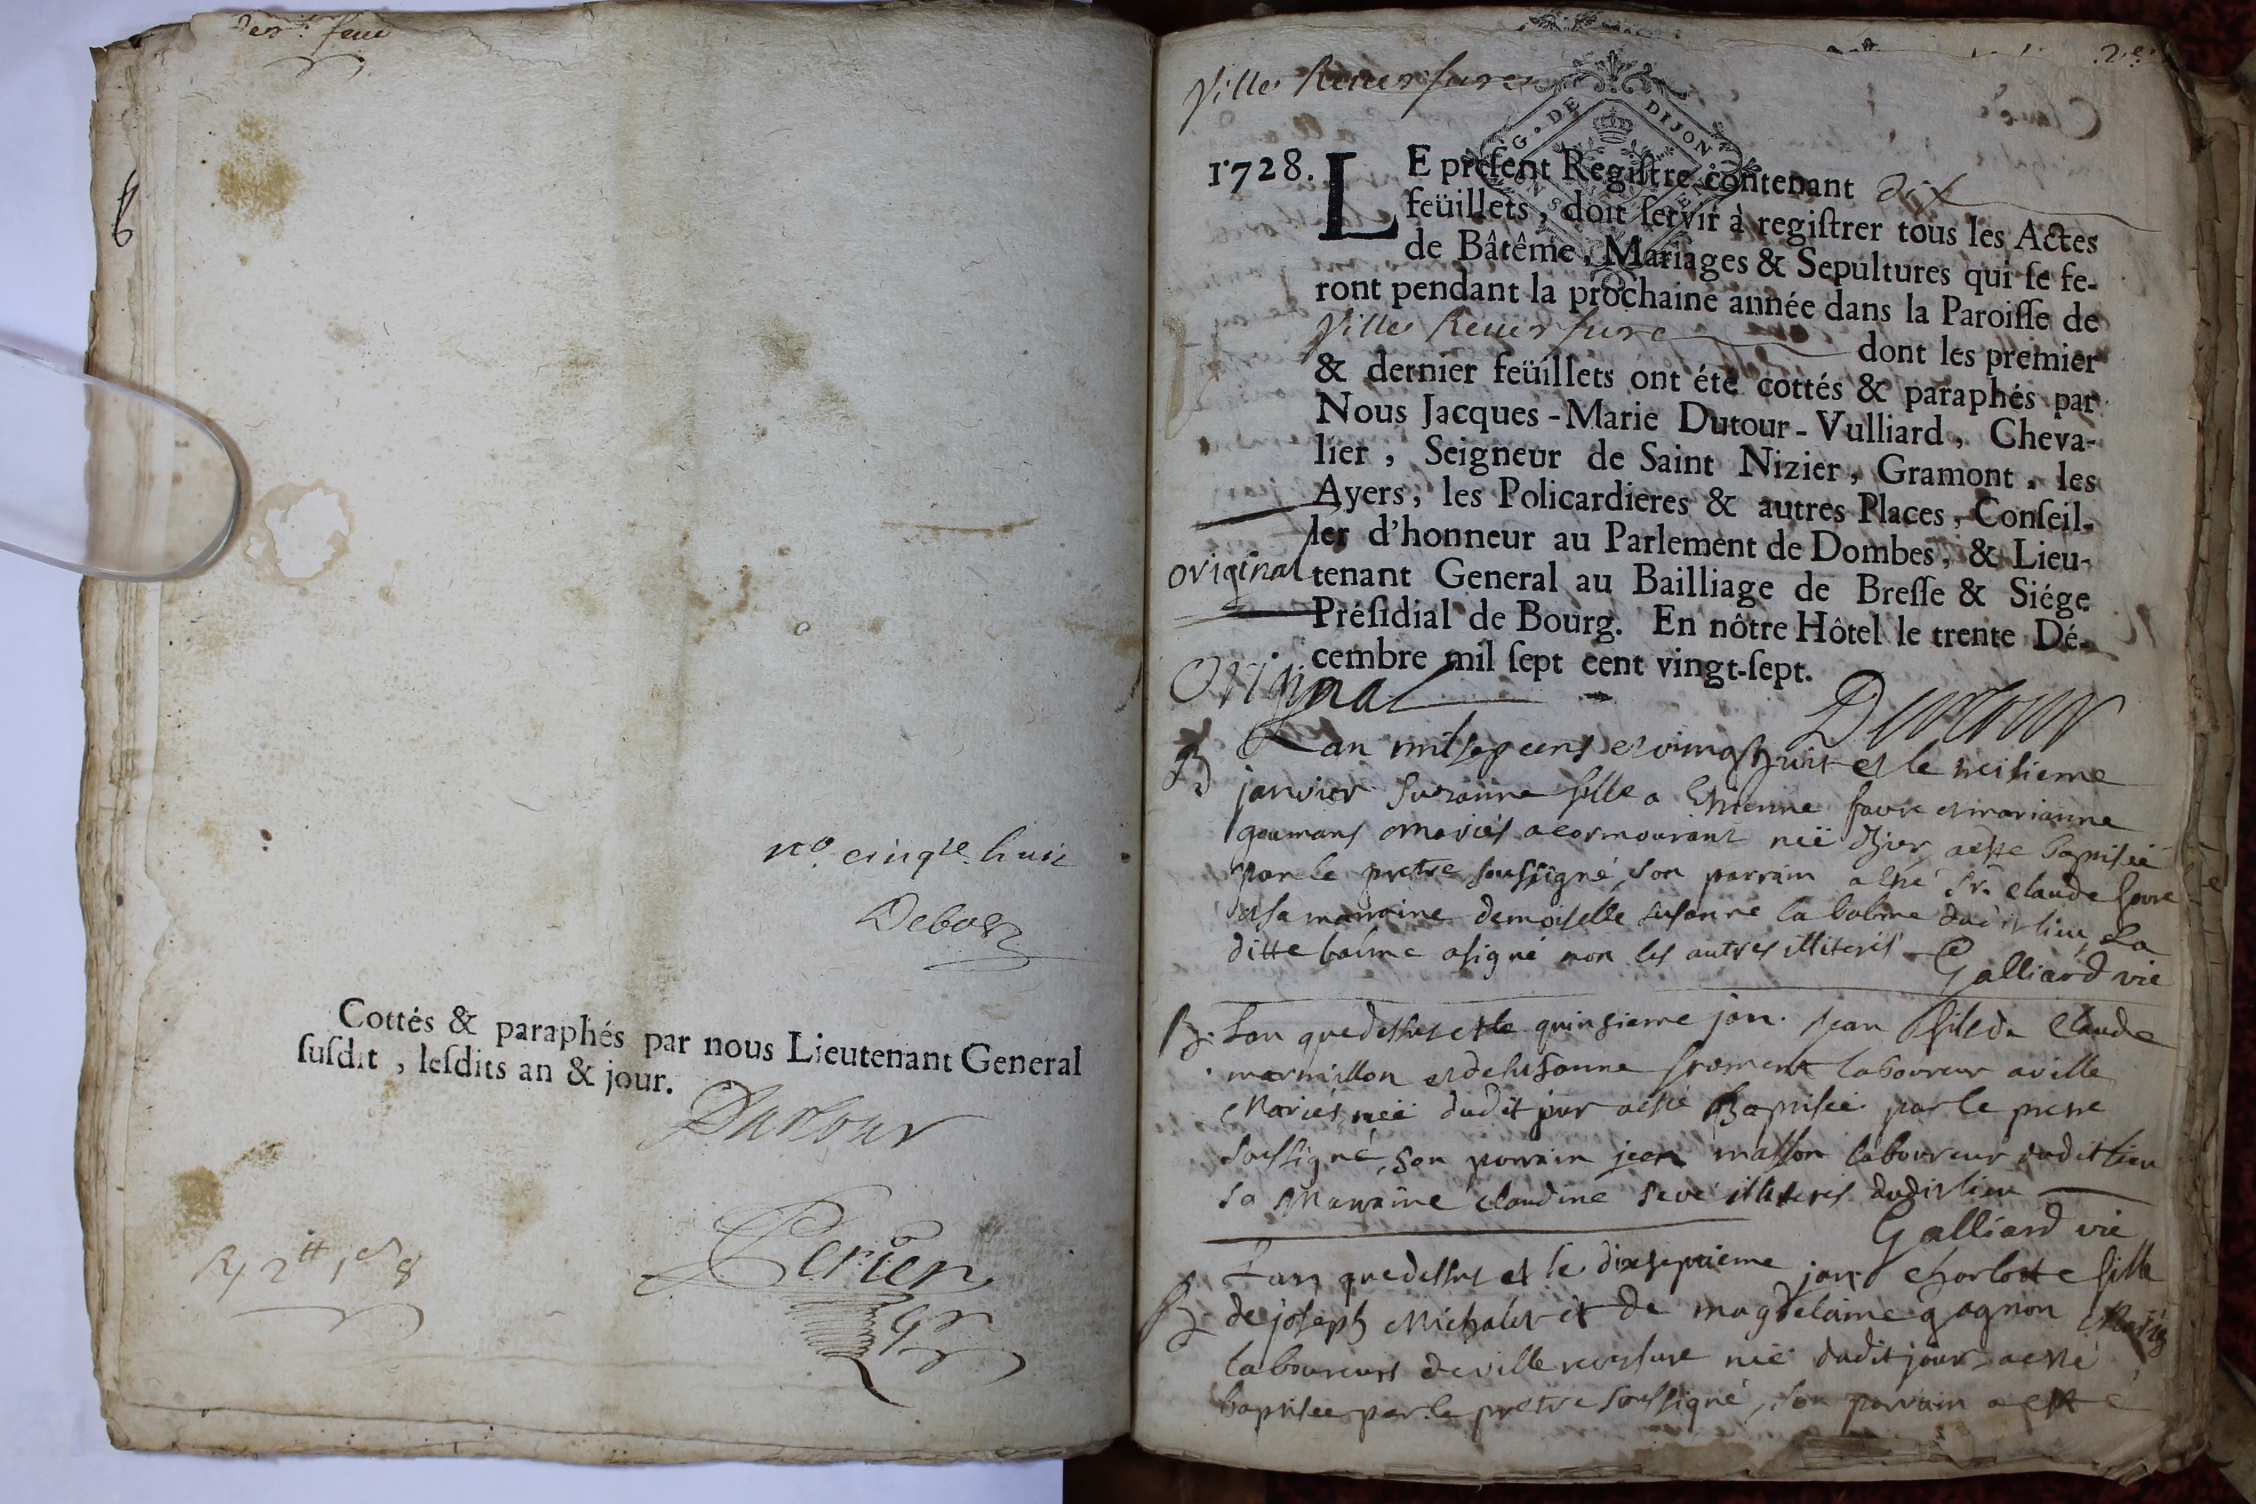 Der.r feuil
6
n.o cinq.te huit
Debost
Cottés & paraphés par nous Lieutenant General
ſuſdit, leſdits an & jour.
Dutour
Perier
R 2tt
2.e
Ville Reuersure
G. DE DIJON
1728. LE preſent Regiſtre contenant dix
feüillets, doit ſervir à regiſtrer tous les Actes
de Bâtême, Mariages & Sepultures qui ſe fe-
ront pendant la prochaine année dans la Paroiſſe de
Ville Reuersure dont les premier
& dernier feüillets ont été cottés & paraphés par
Nous Jacques-Marie Dutour-Vulliard, Cheva-
lier, Seigneur de Saint Nizier, Gramont, les
Ayers, les Policardieres & autres Places, Conſeil-
ler d'honneur au Parlement de Dombes, & Lieu-
original
tenant General au Bailliage de Breſſe & Siége
Préſidial de Bourg. En nôtre Hôtel le trente Dé-
cembre mil ſept cent vingt-ſept.
Original
Dutour
B Lan mil sept cens et vingt huit et le
janvier Suzanne fille a Estienne favre et marianne
mariés a cormourant neë hier a este baptisée
par le pretre soussigné, son parrain a esté Sr. Claude favre
et sa marraine demoiselle susanne la balme dudit lieu, La
ditte balme a signé non les autres illiterés
Galliard vic
B. Lan que dessus et le quinsieme jan. jean fils de Claude
marmillon et de susanne froment laboureur a ville
Mariés neë dudit jour a esté Baptisée par le pretre
soussigné, son parrain jean masson laboureur dudit lieu
sa Marraine claudine seve illiterés dudit lieu
Galliard vic
B. Lan que dessus et le dixseptieme janv charlotte fille
de joseph Michalet et de magdelaine gagnon Mariés
laboureurs de ville reversure neë dudit jour a esté
baptisee par le pretre soussigné, son parrain a esté